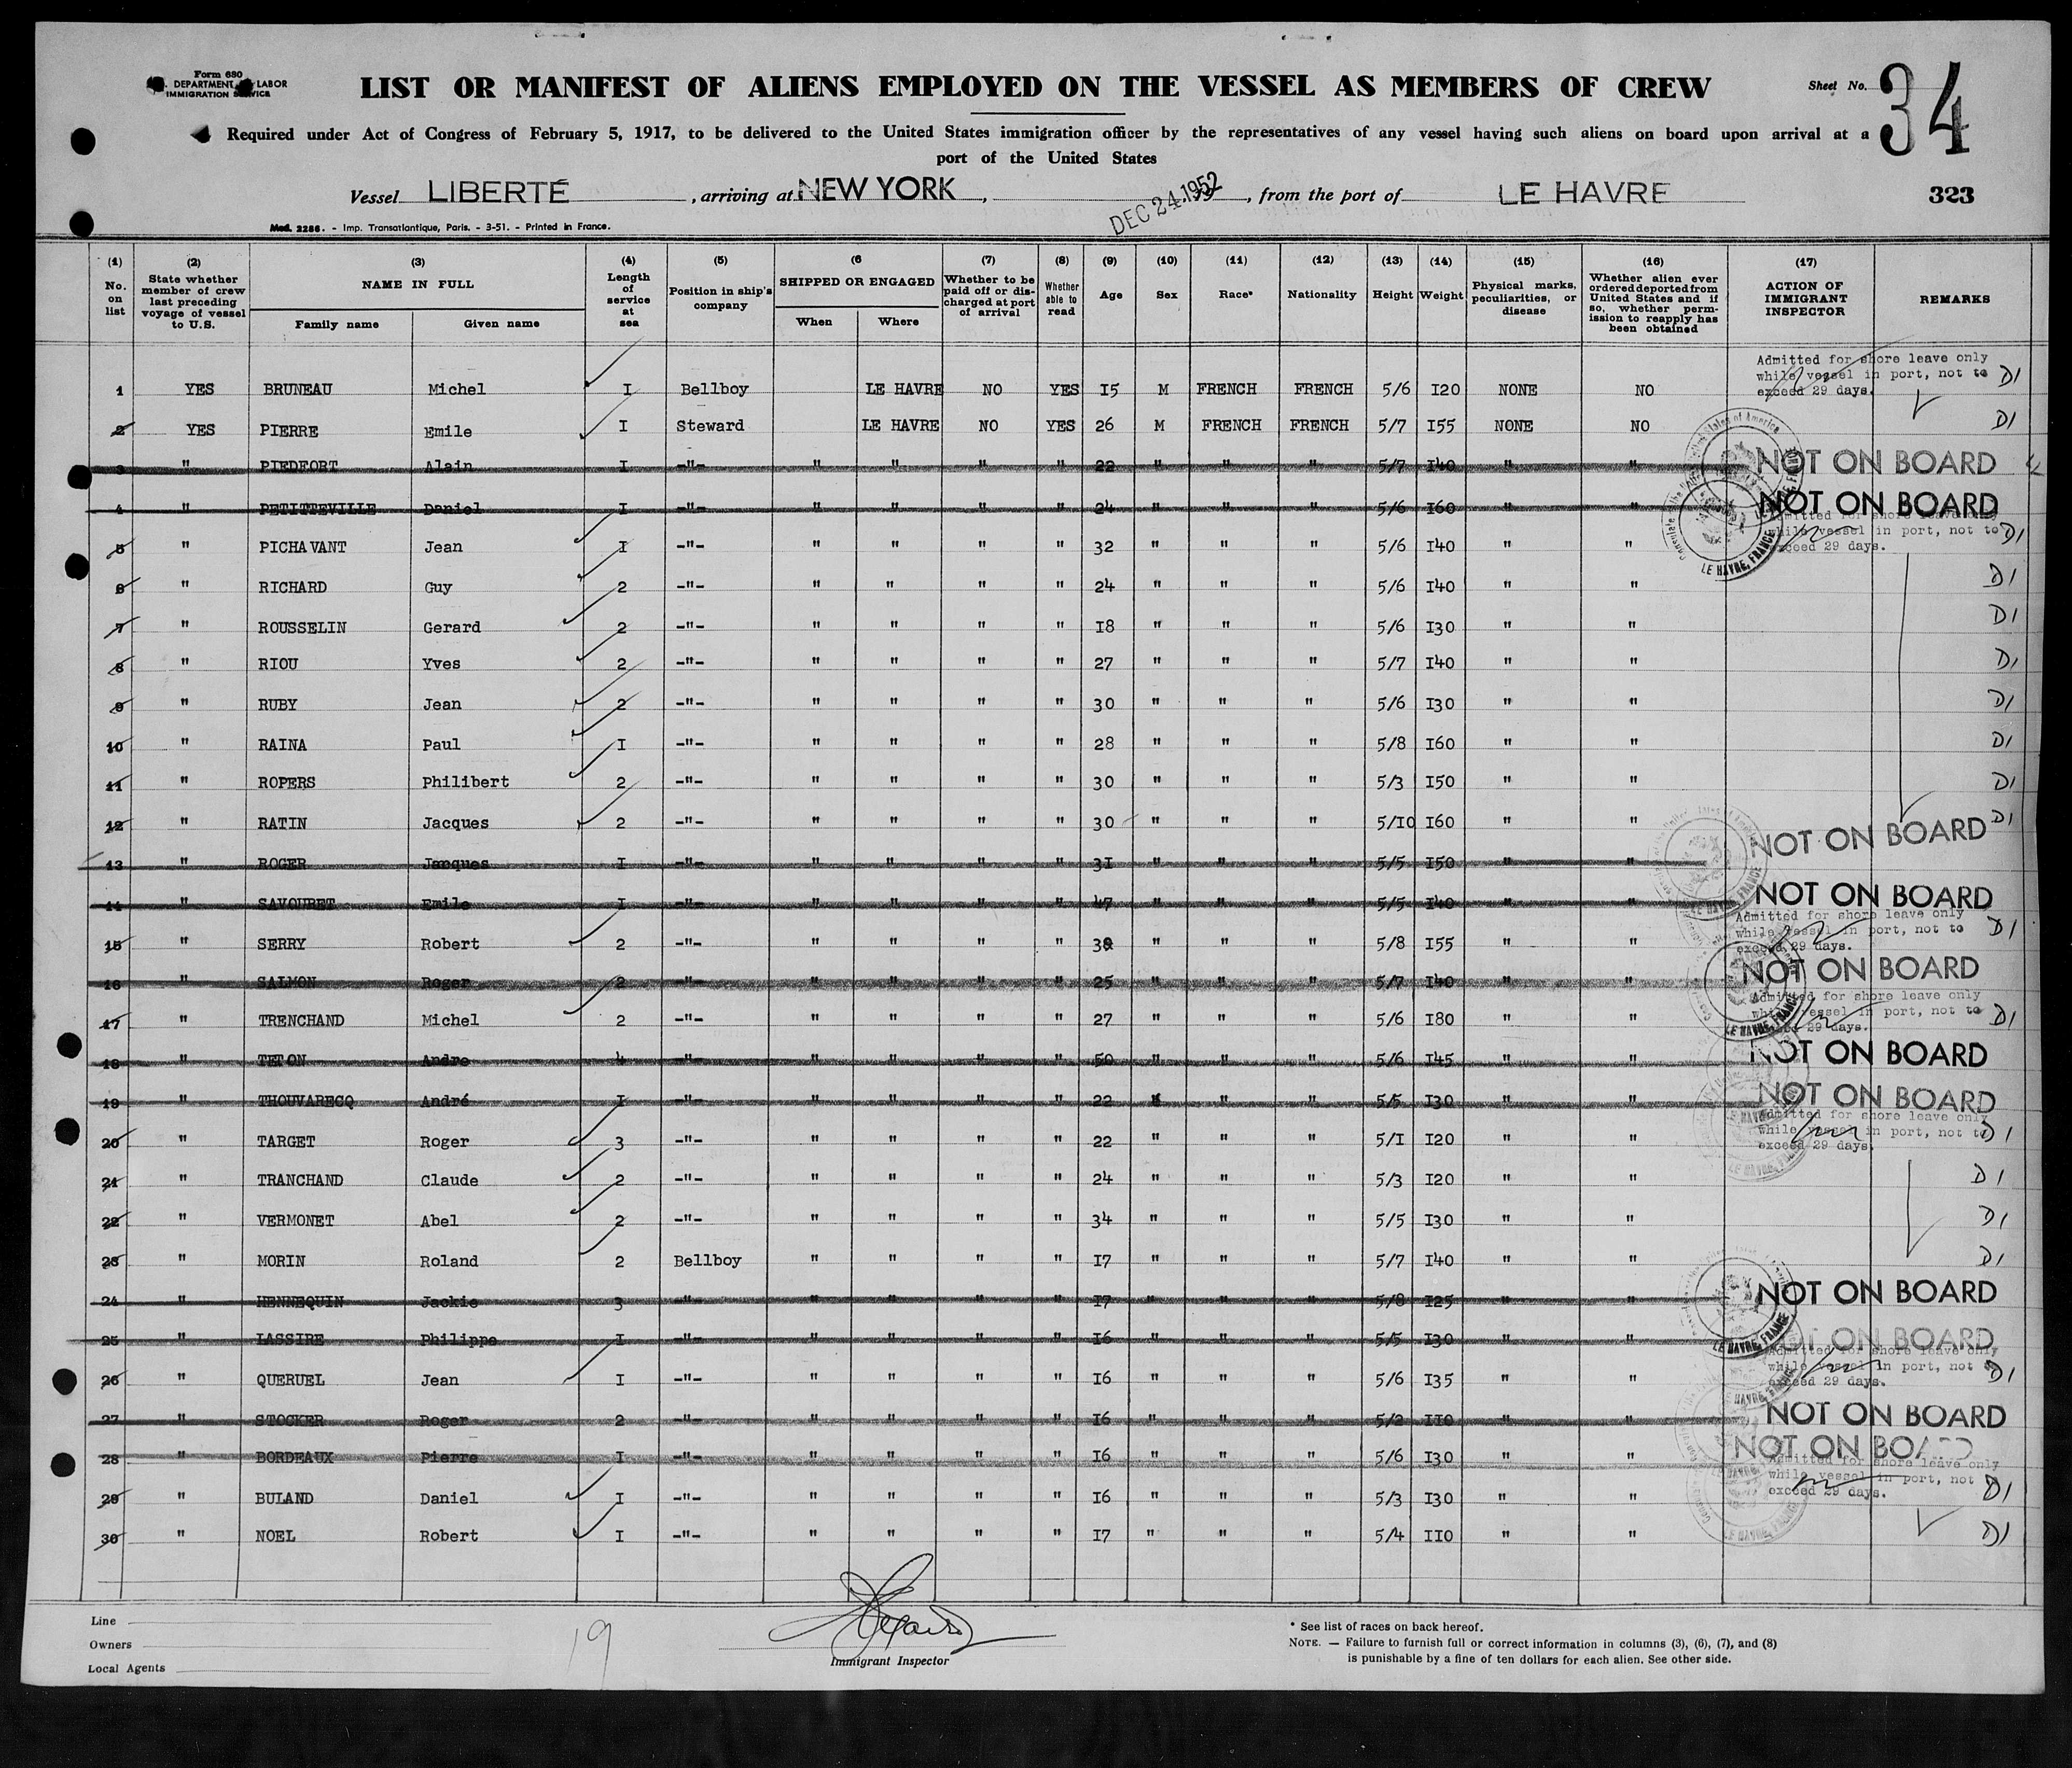 Form 680
DEPARTMENT LABOR
IMMIGRATION SERVICE
LIST OR MANIFEST OF ALIENS EMPLOYED ON THE VESSEL AS MEMBERS OF CREW
Sheet No. 34
Required under Act of Congress of February 5, 1917, to be delivered to the United States immigration officer by the representatives of any vessel having such aliens on board upon arrival at a
port of the United States
Vessel LIBERTÉ, arriving at NEW YORK, DEC 24 1952, from the port of LE HAVRE 323
Mod. 2286. - Imp. Transatlantique, Paris. - 3-51. - Printed in France.
(1) No. on list
(2) State whether member of crew last preceding voyage of vessel to U.S.
(3) NAME IN FULL Family name Given name
(4) Length of service at sea
(5) Position in ship's company
(6 SHIPPED OR ENGAGED When Where
(7) Whether to be paid off or discharged at port of arrival
(8) Whether able to read
(9) Age
(10) Sex
(11) Race*
(12) Nationality
(13) Height
(14) Weight
(15) Physical marks, peculiarities, or disease
(16) Whether alien ever ordered deported from United States and if so, whether permission to reapply has been obtained
(17) ACTION OF IMMIGRANT INSPECTOR
REMARKS
Admitted for shore leave only
while vessel in port, not to
exceed 29 days.
1 YES BRUNEAU Michel I Bellboy LE HAVRE NO YES I5 M FRENCH FRENCH 5/6 I20 NONE NO D1
2 YES PIERRE Emile I Steward LE HAVRE NO YES 26 M FRENCH FRENCH 5/7 I55 NONE NO D1
3 " PIEDFORT Alain I -"- " " " " 22 " " " 5/7 I40 " " NOT ON BOARD
4 " PETITTEVILLE Daniel I -"- " " " " 24 " " " 5/6 I60 " " NOT ON BOARD
Admitted for shore leave only
while vessel in port, not to
exceed 29 days.
5 " PICHAVANT Jean I -"- " " " " 32 " " " 5/6 I40 " " D1
6 " RICHARD Guy 2 -"- " " " " 24 " " " 5/6 I40 " " D1
7 " ROUSSELIN Gerard 2 -"- " " " " I8 " " " 5/6 I30 " " D1
8 " RIOU Yves 2 -"- " " " " 27 " " " 5/7 I40 " " D1
9 " RUBY Jean 2 -"- " " " " 30 " " " 5/6 I30 " " D1
10 " RAINA Paul I -"- " " " " 28 " " " 5/8 I60 " " D1
11 " ROPERS Philibert 2 -"- " " " " 30 " " " 5/3 I50 " " D1
12 " RATIN Jacques 2 -"- " " " " 30 " " " 5/10 I60 " " D1
13 " ROGER Jacques I -"- " " " " 3I " " " 5/5 I50 " " NOT ON BOARD
14 " SAVOURET Emile I -"- " " " " 47 " " " 5/5 I40 " " NOT ON BOARD
Admitted for shore leave only
while vessel in port, not to
exceed 29 days.
15 " SERRY Robert 2 -"- " " " " " " " 5/8 I55 " " D1
16 " SALMON Roger 2 -"- " " " " 25 " " " 5/7 I40 " " NOT ON BOARD
Admitted for shore leave only
while vessel in port, not to
exceed 29 days.
17 " TRENCHAND Michel 2 -"- " " " " 27 " " " 5/6 I80 " " D1
18 " TETON Andre 4 -"- " " " " 50 " " " 5/6 I45 " " NOT ON BOARD
19 " THOUVARECQ André I -"- " " " " 22 " " 5/5 I30 " " NOT ON BOARD
Admitted for shore leave only
while vessel in port, not to
exceed 29 days.
20 " TARGET Roger 3 -"- " " " " 22 " " " 5/I I20 " " D1
21 " TRANCHAND Claude 2 -"- " " " " 24 " " " 5/3 I20 " " D1
22 " VERMONET Abel 2 -"- " " " " 34 " " " 5/5 I30 " " D1
23 " MORIN Roland 2 Bellboy " " " " I7 " " " 5/7 I40 " " D1
24 " HENNEQUIN Jackie 3 -"- " " " " I7 " " " 5/8 I25 " " NOT ON BOARD
25 " LASSIRE Philippe I -"- " " " " I6 " " " 5/5 I30 " " NOT ON BOARD
Admitted for shore leave only
while vessel in port, not
exceed 29 days.
26 " QUERUEL Jean I -"- " " " " I6 " " " 5/6 I35 " " D1
27 " STOCKER Roger 2 -"- " " " " I6 " " " 5/2 II0 " " NOT ON BOARD
28 " BORDEAUX Pierre I -"- " " " " I6 " " " 5/6 I30 " " NOT ON BOARD
Admitted for shore leave only
while vessel in port, not
exceed 29 days.
29 " BULAND Daniel I -"- " " " " I6 " " " 5/3 I30 " " D1
30 " NOEL Robert I -"- " " " " I7 " " " 5/4 II0 " " D1
LE HAVRE, FRANCE
Line
Owners
Local Agents
19
Immigrant Inspector
* See list of races on back hereof.
NOTE. — Failure to furnish full or correct information in columns (3), (6), (7), and (8)
is punishable by a fine of ten dollars for each alien. See other side.